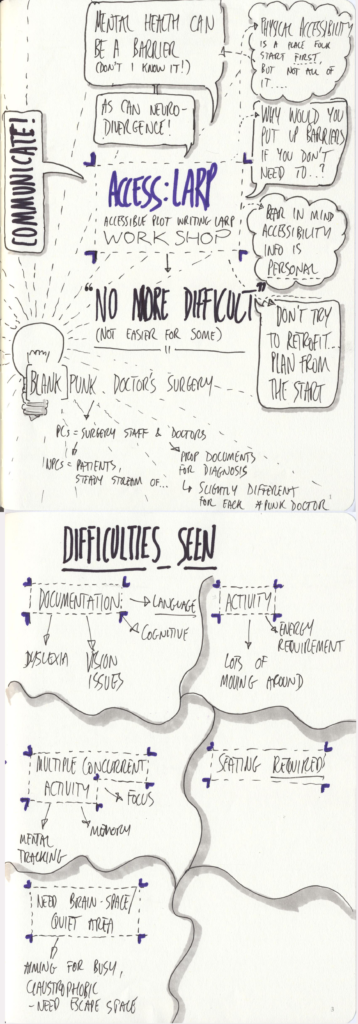 MENTAL HEALTH CAN
BE A BARRIER
(DON'T I KNOW IT!)
AS CAN NEURO-
DIVERGENCE!
PHYSICAL ACCESSIBILITY
IS A PLACE FOLK
START FIRST,
BUT NOT ALL OF
IT...
WHY WOULD YOU
PUT UP BARRIERS
IF YOU DON'T
NEED TO..?
COMMUNICATE!
ACCESS:LARP
ACCESSIBLE PLOT WRITING LARP
WORKSHOP
BEAR IN MIND
ACCESSIBILITY
INFO IS
PERSONAL
"NO MORE DIFFICULT"
(NOT EASIER FOR SOME)
DON'T TRY
TO RETROFIT...
PLAN FROM
THE START
[BLANK] PUNK DOCTOR'S SURGERY
PCs = SURGERY STAFF & DOCTORS
NPCs = PATIENTS,
STEADY STREAM OF...
PROP DOCUMENTS
FOR DIAGNOSIS
SLIGHTLY DIFFERENT
FOR EACH #PUNK DOCTOR
DIFFICULTIES SEEN
DOCUMENTATION:
LANGUAGE
COGNITIVE
DYSLEXIA
VISION
ISSUES
ACTIVITY
ENERGY
REQUIREMENT
LOTS OF
MOVING AROUND
MULTIPLE CONCURRENT
ACTIVITY
FOCUS
MEMORY
MENTAL
TRACKING
SEATING REQUIRED
NEED BRAIN-SPACE/
QUIET AREA
AIMING FOR BUSY,
CLAUSTROPHOBIC
- NEED ESCAPE SPACE
3